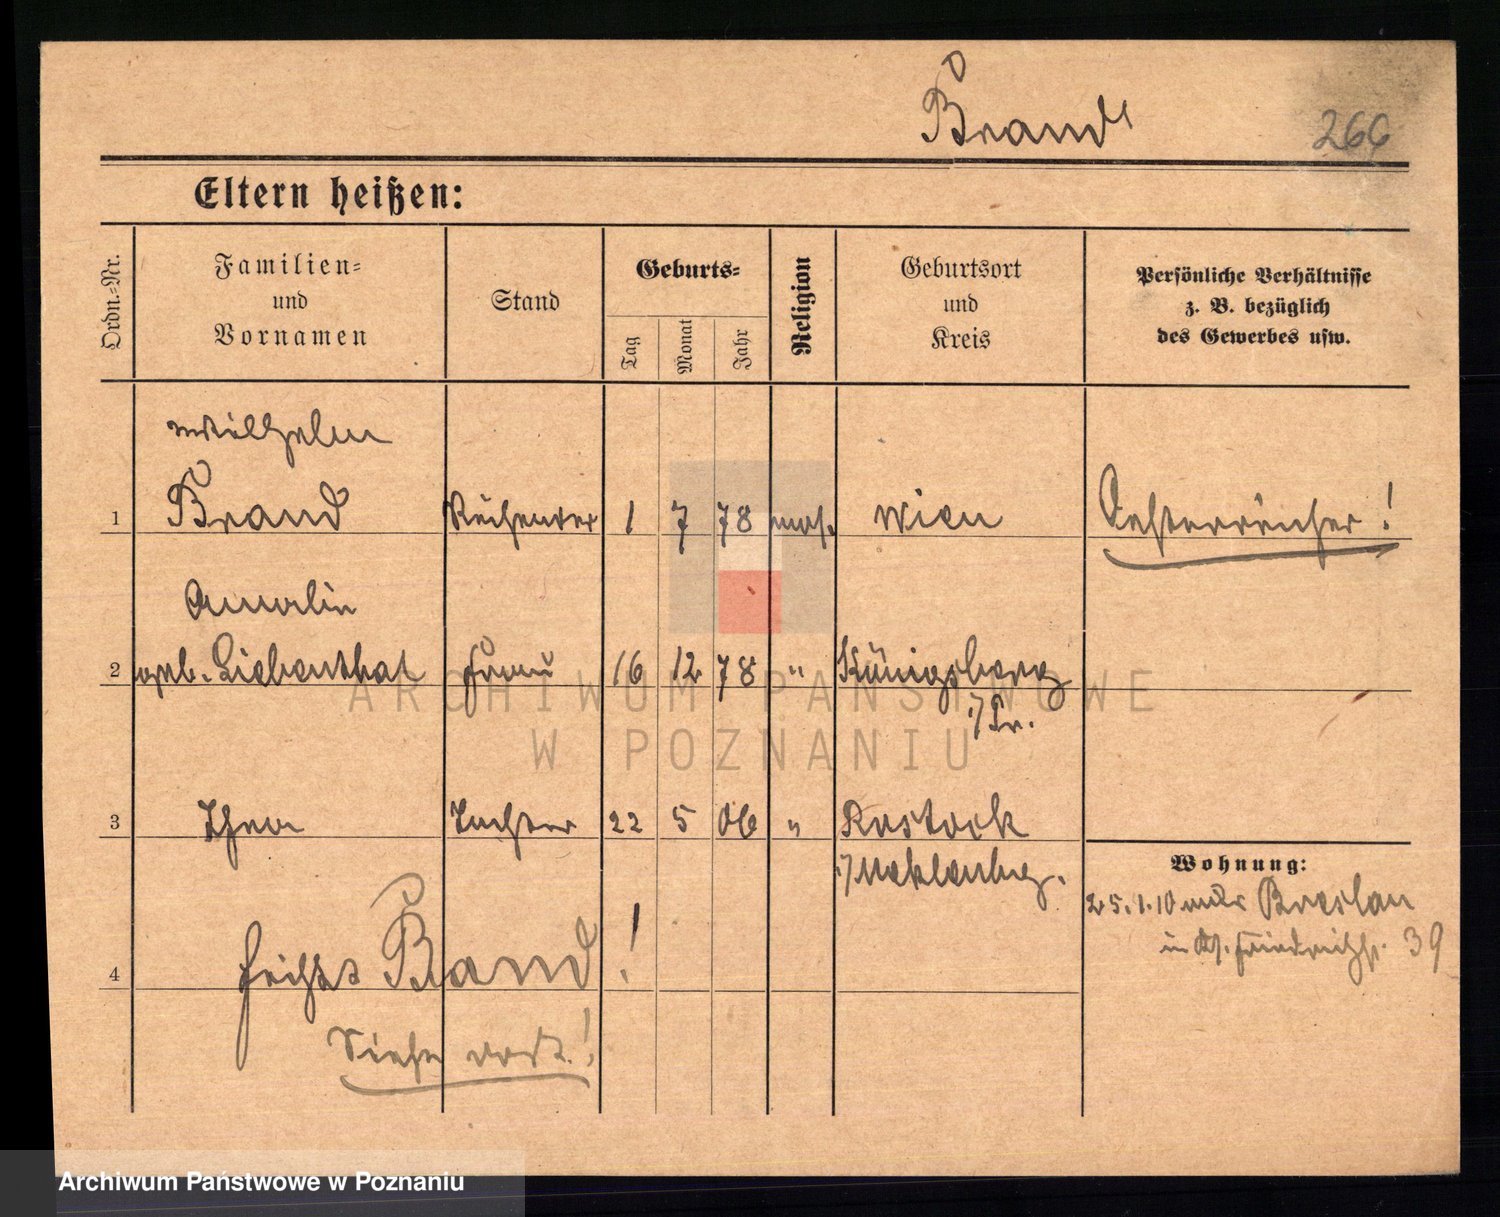 Brand
266
Eltern heißen:
Ordn.-Nr.
Familien-
und
Vornamen
Stand
Geburts-
Tag
Monat
Jahr
Religion
Geburtsort
und
Kreis
Persönliche Verhältnisse
z. B. bezüglich
des Gewerbes usw.
Wilhelm
1 Brand 1 7 78 mos. Wien Oesterreicher!
Amalie
2 geb. Liebenthal Frau 16 12 78 " Königsberg
i/Pr.
3 Thea Tochter 22 5 06 " Rostock
i/Meklenbg.
Wohnung:
25.1.10 Breslau
39
4 Brand!
Siehe dort!
ARCHIWUM PAŃSTWOWE
W POZNANIU
Archiwum Państwowe w Poznaniu